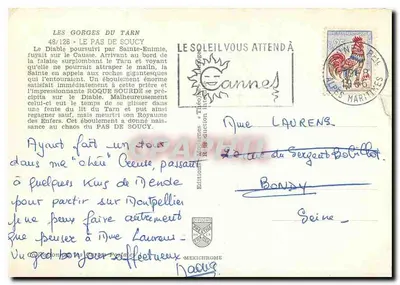 LES GORGES DU TARN
48/128 - LE PAS DE SOUCY
Le Diable poursuivi par Sainte-Enimie,
fuyait sur le Causse. Arrivant au bord de
la falaise surplombant le Tarn et voyant
qu'elle ne pourrait attraper le malin, la
Sainte en appela aux roches gigantesques
qui l'entouraient. Un éboulement énorme
satisfit immédiatement à cette prière et
l'impressionnante ROQUE SOURDE se pré-
cipita sur le Diable. Malheureusement
celui-ci eut le temps de se glisser dans
une fente du lit du Tarn et put ainsi
regagner seul, mais meurtri son Royaume
des Enfers. Cet éboulement a donné nais-
sance au chaos du PAS DE SOUCY.
LE SOLEIL VOUS ATTEND À
Cannes
ALPES MARITIMES
Mme LAURENS
20 rue du Sergent Bobillot
BONDY
Seine
Ayant fait un
dans ma "chère" Creuse, passant
à quelques kms de Mende
pour partir sur Montpellier
je ne peux faire autrement
que penser à Mme Laurens
Un gros bonjour affectueux
MEXICHROME